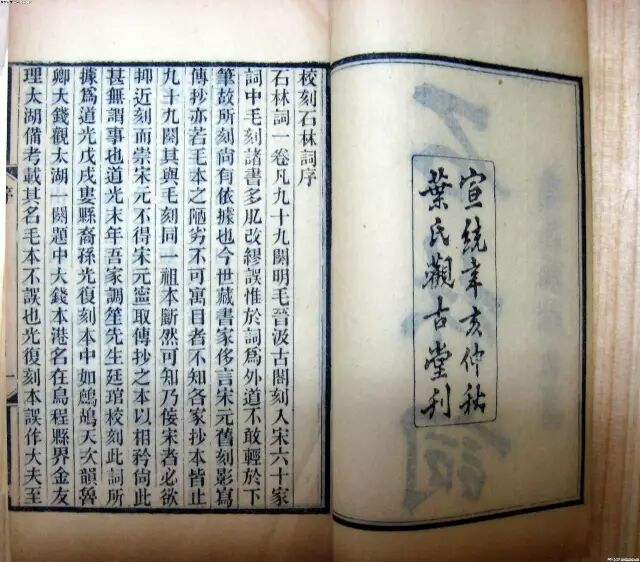 宣統辛亥仲秋
葉氏觀古堂刊
校刻石林詞序
石林詞一卷凡九十九闋明毛晉汲古閣刻入宋六十家
詞中毛刻諸書多肊改繆誤惟於詞爲外道不敢輕於下
筆故所刻尚有依據也今世藏書家侈言宋元舊刻影寫
傳抄亦若毛本之陋劣不可寓目者不知各家抄本皆止
九十九闋其與毛刻同一祖本斷然可知乃佞宋者必欲
抑近刻而崇宋元不得宋元寧取傳抄之本以相矜尚此
甚無謂事也道光末年吾家調笙先生廷琯校刻此詞所
據爲道光戊戌婁縣裔孫光復刻本中如鷓鴣天次韻魯
卿大錢觀太湖一闋題中大錢本港名在烏程縣界金友
理太湖備考載其名毛本不誤也光復刻本誤作大夫至
序